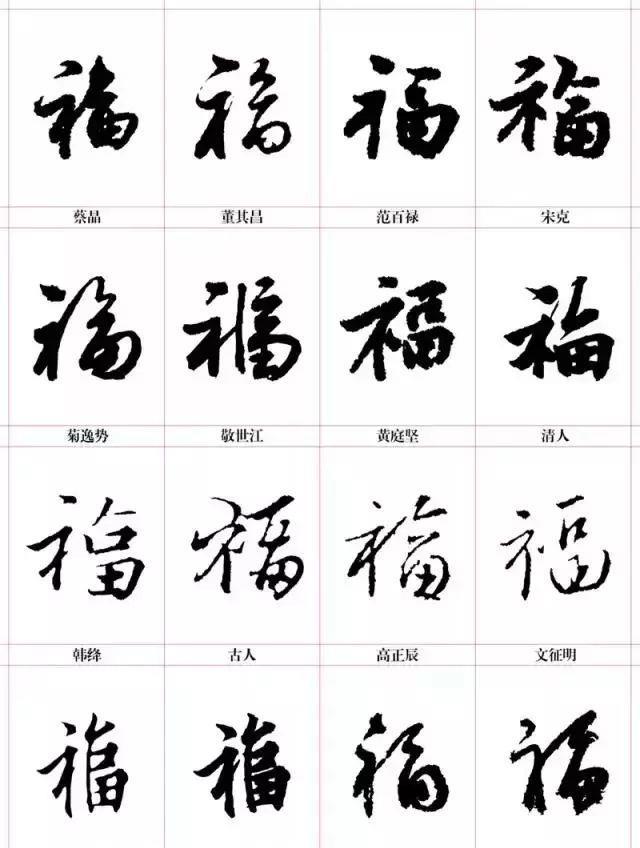 福 福 福 福
蔡晶 董其昌 范百禄 宋克
福 福 福 福
菊逸势 敬世江 黄庭坚 清人
福 福 福 福
韩绛 古人 高正辰 文征明
福 福 福 福